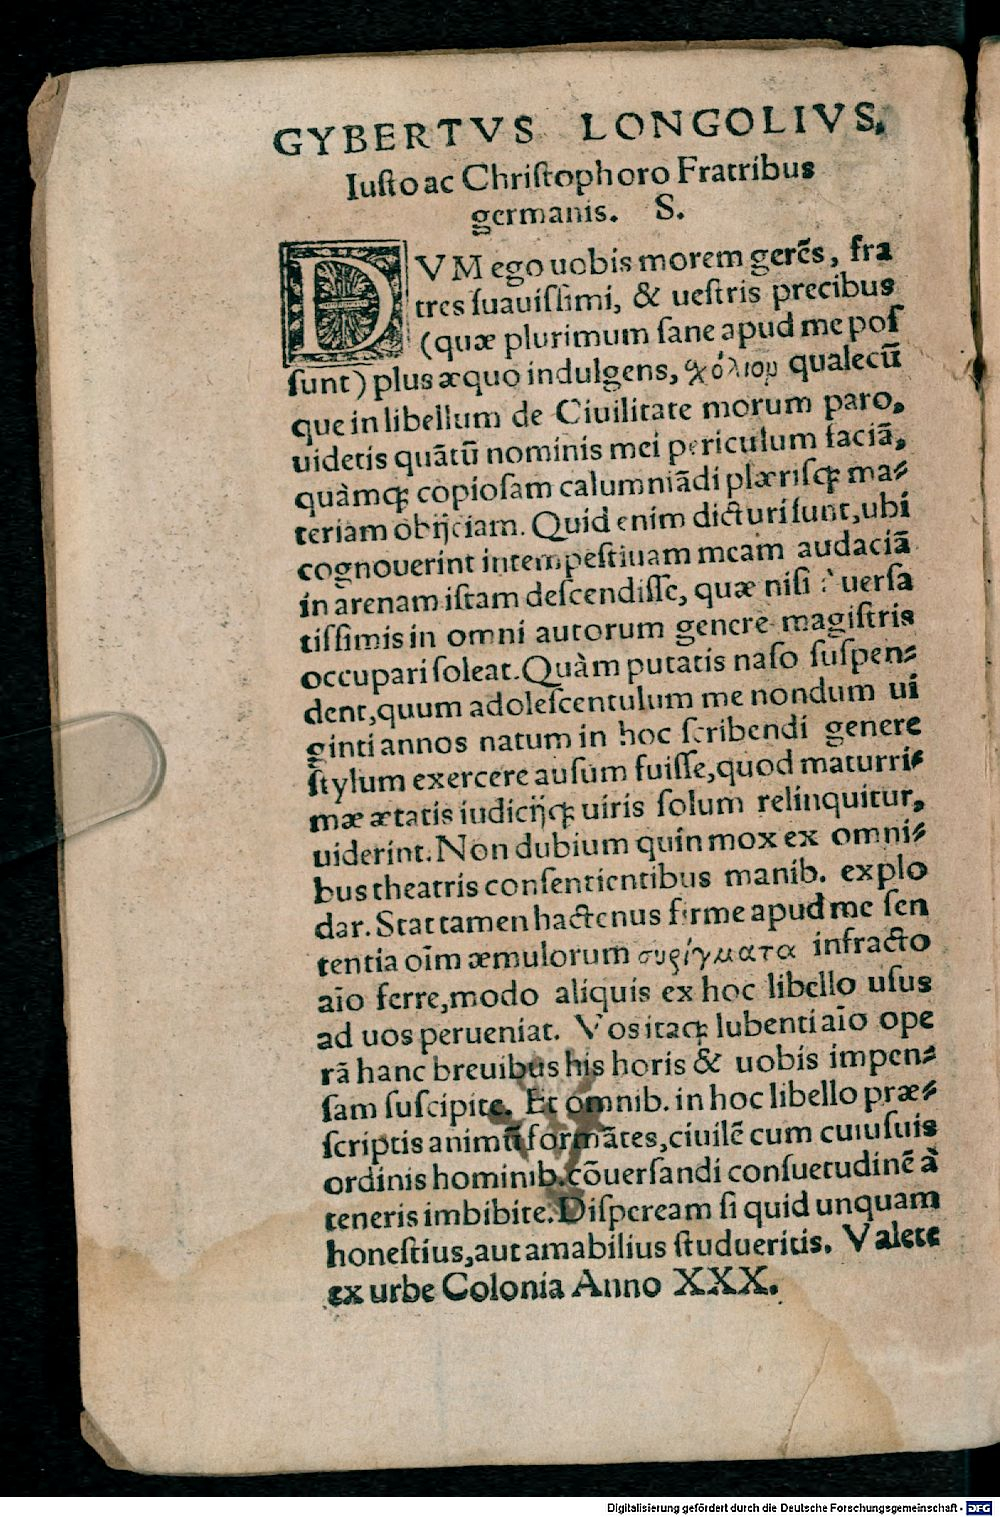 GYBERTVS LONGOLIVS,
Iuſto ac Chriſtophoro Fratribus
germanis. S.
DVM ego uobis morem gerẽs, fra
tres ſuauiſſimi, & ueſtris precibus
(quæ plurimum ſane apud me poſ
ſunt) plus æquo indulgens, σχόλιον qualecũ
que in libellum de Ciuilitate morum paro,
uidetis quãtũ nominis mei periculum faciã,
quàmq; copioſam calumniãdi plæriſq; ma⸗
teriam obijciam. Quid enim dicturi ſunt, ubi
cognouerint intempeſtiuam meam audaciã
in arenam iſtam deſcendiſſe, quæ niſi à uerſa
tiſſimis in omni autorum genere magiſtris
occupari ſoleat. Quàm putatis naſo ſuſpen⸗
dent, quum adoleſcentulum me nondum ui
ginti annos natum in hoc ſcribendi genere
ſtylum exercere auſum fuiſſe, quod maturri⸗
mæ ætatis iudicijq; uiris ſolum relinquitur,
uiderint. Non dubium quin mox ex omni⸗
bus theatris conſentientibus manib. explo
dar. Stat tamen hactenus firme apud me ſen
tentia oĩm æmulorum συρίγματα infracto
aĩo ferre, modo aliquis ex hoc libello uſus
ad uos perueniat. Vos itaq; lubenti aĩo ope
rã hanc breuibus his horis & uobis impen⸗
ſam ſuſcipite. Et omnib. in hoc libello præ⸗
ſcriptis animũ formãtes, ciuilẽ cum cuiuſuis
ordinis hominib. cõuerſandi conſuetudinẽ à
teneris imbibite. Diſpeream ſi quid unquam
honeſtius, aut amabilius ſtudueritis. Valete
ex urbe Colonia Anno XXX.
Digitalisierung gefördert durch die Deutsche Forschungsgemeinschaft - DFG